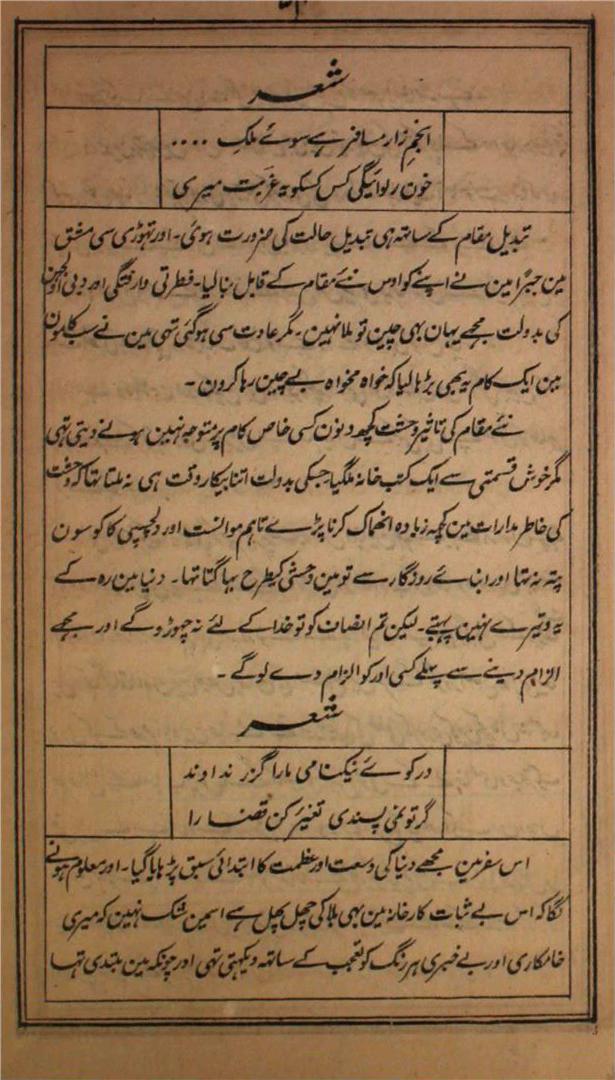 شعر
انجم زار مسافر ہے سوئے ملکِ ....
خون رلوائیگی کس کسکو یہ غربت میری
تبدیل مقام کے ساتہ ہی تبدیل حالت کی ضرورت ہوئی۔ اور تہوڑی سی مشق
مین جبراً مین نے اپنے کو اوس نئے مقام کے قابل بنا لیا۔ فطرتی وارفتگی اور دبی اولجھن
کی بدولت مجھے یہان بھی چین تو ملا نہین۔ مگر عادت سی ہوگئی تہی مین نے سب کامون
مین ایک کام یہ بھی بڑہا لیا کہ خواہ مخواہ بے چین رہا کرون۔
نئے مقام کی تاثیر وحشت کچھ دنون کسی خاص کام پر متوجہ نہین ہونے دیتی تہی
مگر خوش قسمتی سے ایک کتب خانہ ملگیا جسکی بدولت اتنا بیکار وقت ہی نہ ملتا تہا کہ وحشت
کی خاطر مدارات مین کچہ زیادہ انھماک کرنا پڑے تاہم موانست اور دلچسپی کا کوسون
پتہ نہ تہا اور ابنائے روزگار سے تو مین وحشی کیطرح بہاگتا تہا۔ دنیا مین رہ کے
یہ وتیرے نہین پہبتے۔ لیکن تم انصاف کو تو خدا کے لئے نہ چہوڑوگے اور مجھے
الزام دینے سے پہلے کسی اور کو الزام دے لوگے۔
شعر
در کوئے نیکنامی مارا گزر ندادند
گر تو نمی پسندی تغیر کن قضا را
اس سفر مین مجھے دنیا کی وسعت اور عظمت کا ابتدائی سبق پڑہایا گیا۔ اور معلوم ہونے
لگا کہ اس بے ثبات کارخانہ مین بھی بلا کی چہل پہل ہے اسمین شک نہین کہ میری
خامکاری اور بے خبری ہر رنگ کو تعجب کے ساتہ دیکہتی تہی اور چونکہ مین مبتدی تہا